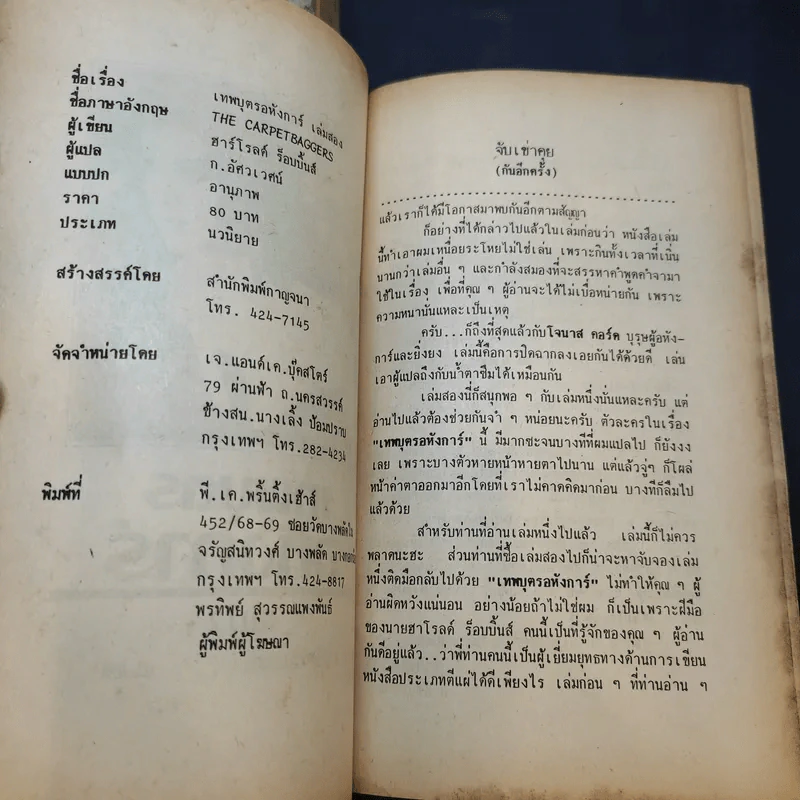 ชื่อเรื่อง เทพบุตรอหังการ์ เล่มสอง
ชื่อภาษาอังกฤษ THE CARPETBAGGERS
ผู้เขียน ฮาร์โรลด์ ร็อบบิ้นส์
ผู้แปล ก.อัศวเวศน์
แบบปก อานุภาพ
ราคา 80 บาท
ประเภท นวนิยาย
สร้างสรรค์โดย สำนักพิมพ์กาญจนา
โทร. 424-7145
จัดจำหน่ายโดย เจ.แอนด์เค.บุ๊คสโตร์
79 ผ่านฟ้า ถ.นครสวรรค์
ข้างสน.นางเลิ้ง ป้อมปราบ
กรุงเทพฯ โทร.282-4234
พิมพ์ที่ พี.เค.พริ้นติ้งเฮ้าส์
452/68-69 ซอยวัดบางพลัดใน
จรัญสนิทวงศ์ บางพลัด
กรุงเทพฯ โทร.424-8817
พรทิพย์ สุวรรณแพงพันธ์
ผู้พิมพ์ผู้โฆษณา
จับเข่าคุย
(กันอีกครั้ง)
แล้วเราก็ได้มีโอกาสมาพบกันอีกตามสัญญา
ก็อย่างที่ได้กล่าวไปแล้วในเล่มก่อนว่า หนังสือเล่ม
นี้ทำเอาผมเหนื่อยระโหยไม่ใช่เล่น เพราะกินทั้งเวลาที่เนิ่น
นานกว่าเล่มอื่น ๆ และกำลังสมองที่จะสรรหาคำพูดคำจามา
ใช้ในเรื่อง เพื่อที่คุณ ๆ ผู้อ่านจะได้ไม่เบื่อหน่ายกัน เพราะ
ความหนานั่นแหละเป็นเหตุ
ครับ...ก็ถึงที่สุดแล้วกับโจนาส คอร์ด บุรุษผู้อหัง-
การ์และยิ่งยง เล่มนี้คือการปิดฉากลงเอยกันได้ด้วยดี เล่น
เอาผู้แปลถึงกับน้ำตาซึมได้เหมือนกัน
เล่มสองนี่ก็สนุกพอ ๆ กับเล่มหนึ่งนั่นแหละครับ แต่
อ่านไปแล้วต้องช่วยกันจำ ๆ หน่อยนะครับ ตัวละครในเรื่อง
"เทพบุตรอหังการ์" นี้ มีมากซะจนบางทีที่ผมแปลไป ก็ยังงง
เลย เพราะบางตัวหายหน้าหายตาไปนาน แต่แล้วจู่ๆ ก็โผล่
หน้าค่าตาออกมาอีกโดยที่เราไม่คาดคิดมาก่อน บางทีก็ลืมไป
แล้วด้วย
สำหรับท่านที่อ่านเล่มหนึ่งไปแล้ว เล่มนี้ก็ไม่ควร
พลาดนะฮะ ส่วนท่านที่ซื้อเล่มสองไปก็น่าจะหาจับจองเล่ม
หนึ่งติดมือกลับไปด้วย "เทพบุตรอหังการ์" ไม่ทำให้คุณ ๆ ผู้
อ่านผิดหวังแน่นอน อย่างน้อยถ้าไม่ใช่ผม ก็เป็นเพราะฝีมือ
ของนายฮาโรลด์ ร็อบบิ้นส์ คนนี้เป็นที่รู้จักของคุณ ๆ ผู้อ่าน
กันดีอยู่แล้ว..ว่าพี่ท่านคนนี้เป็นผู้เยี่ยมยุทธทางด้านการเขียน
หนังสือประเภทตีแผ่ได้ดีเพียงไร เล่มก่อน ๆ ที่ท่านอ่าน ๆ